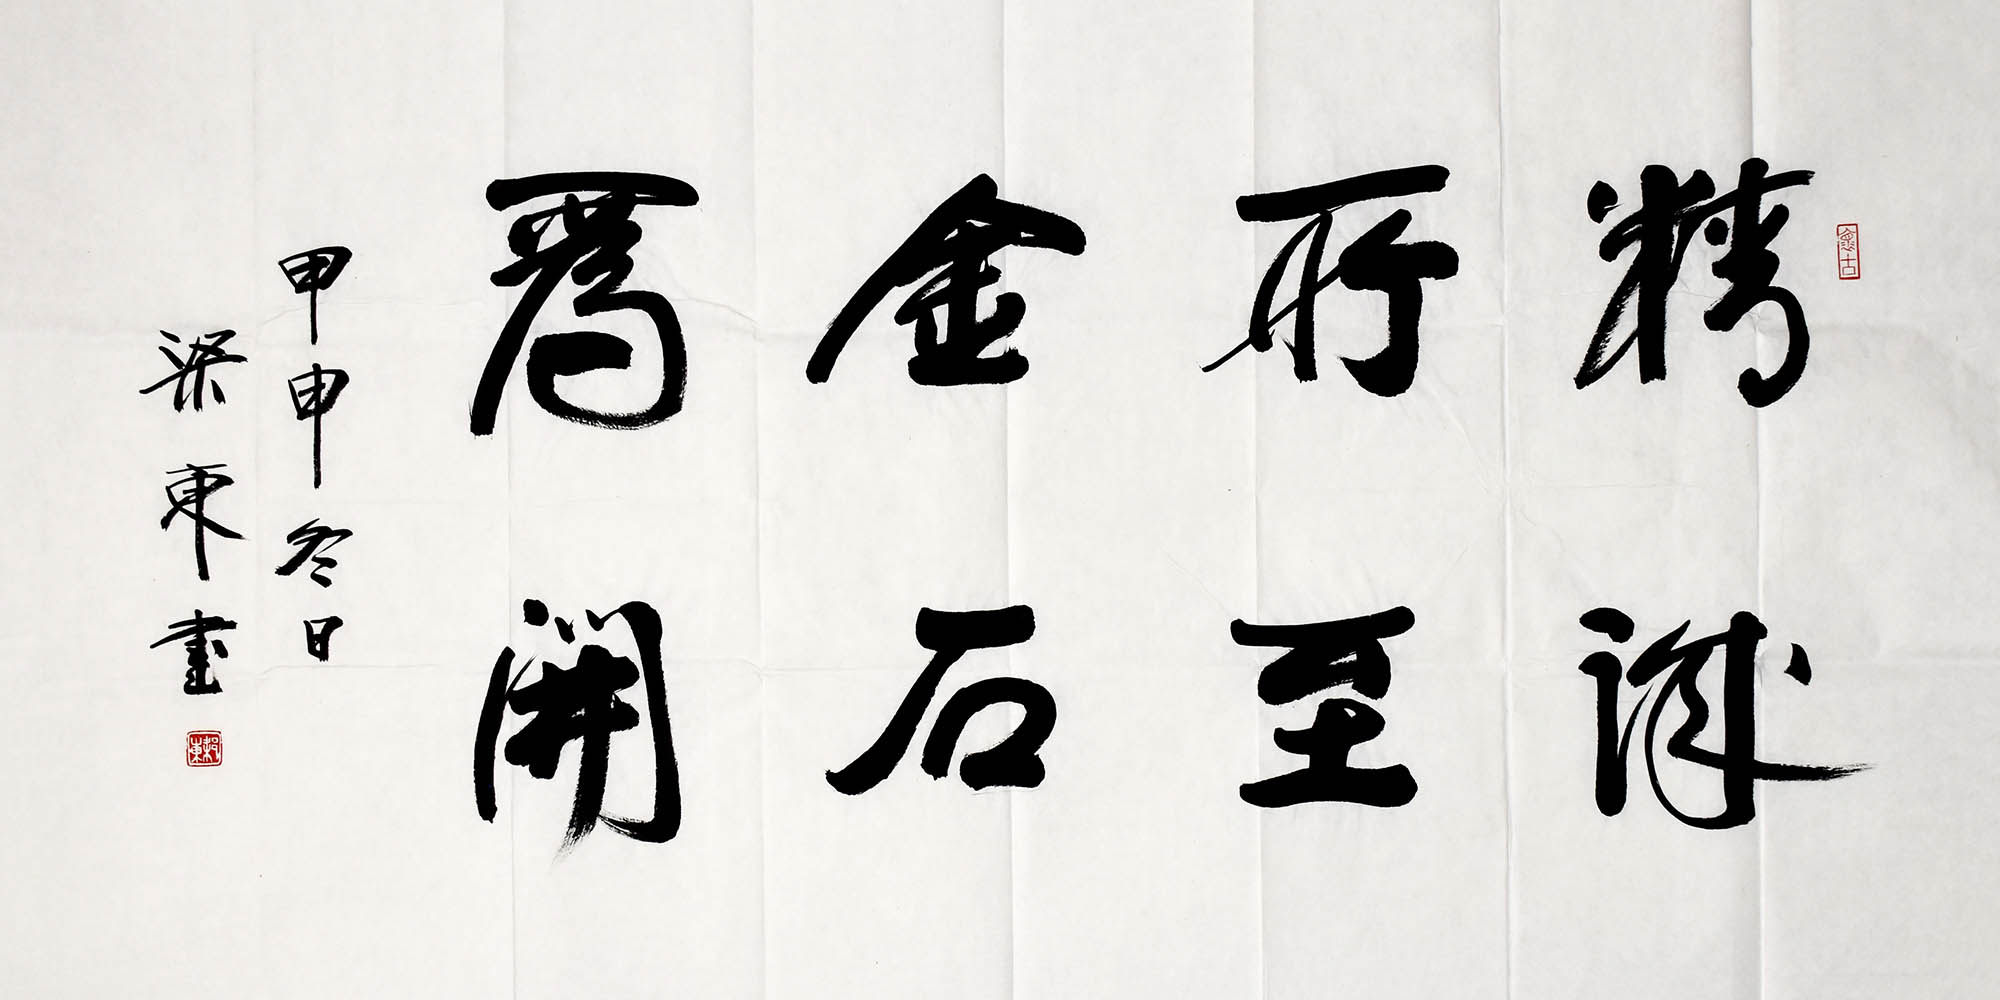 精誠
所至
金石
為開
甲申冬日
梁東書
念古